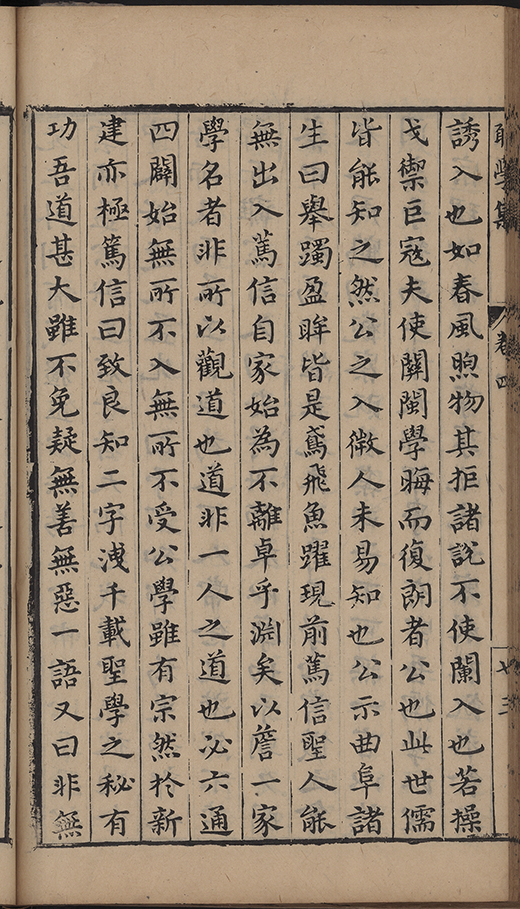 學集
卷四
誘入也如春風煦物其拒諸說不使闌入也若操
戈禦巨寇夫使關閩學晦而復朗者公也此世儒
皆能知之然公之入微人未易知也公示曲阜諸
生曰舉躅盈眸皆是鳶飛魚躍現前篤信聖人能
無出入篤信自家始為不離卓乎淵矣以詹一家
學名者非所以觀道也道非一人之道也必六通
四闢始無所不入無所不受公學雖有宗然於新
建亦極篤信曰致良知二字洩千載聖學之秘有
功吾道甚大雖不免疑無善無惡一語又曰非無